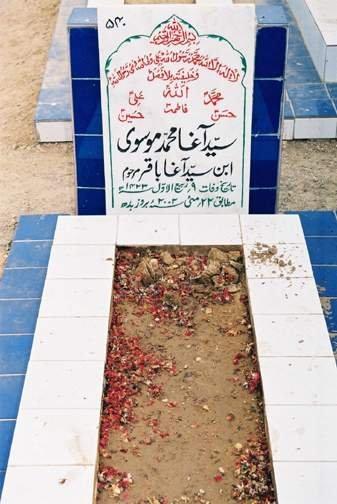 ۵۳۰
بسم اللہ الرحمن الرحیم
لا الہ الا اللہ محمد رسول اللہ علی ولی اللہ وصی رسول اللہ
و خلیفتہ بلا فصل
اللہ
محمد علی
فاطمہ
حسن حسین
سید آغا محمد موسوی
ابن سید آغا باقر مرحوم
تاریخ وفات ۹ ربیع الاول ۱۴۲۳ھ
مطابق ۲۲ مئی ۲۰۰۲ء بروز بدھ